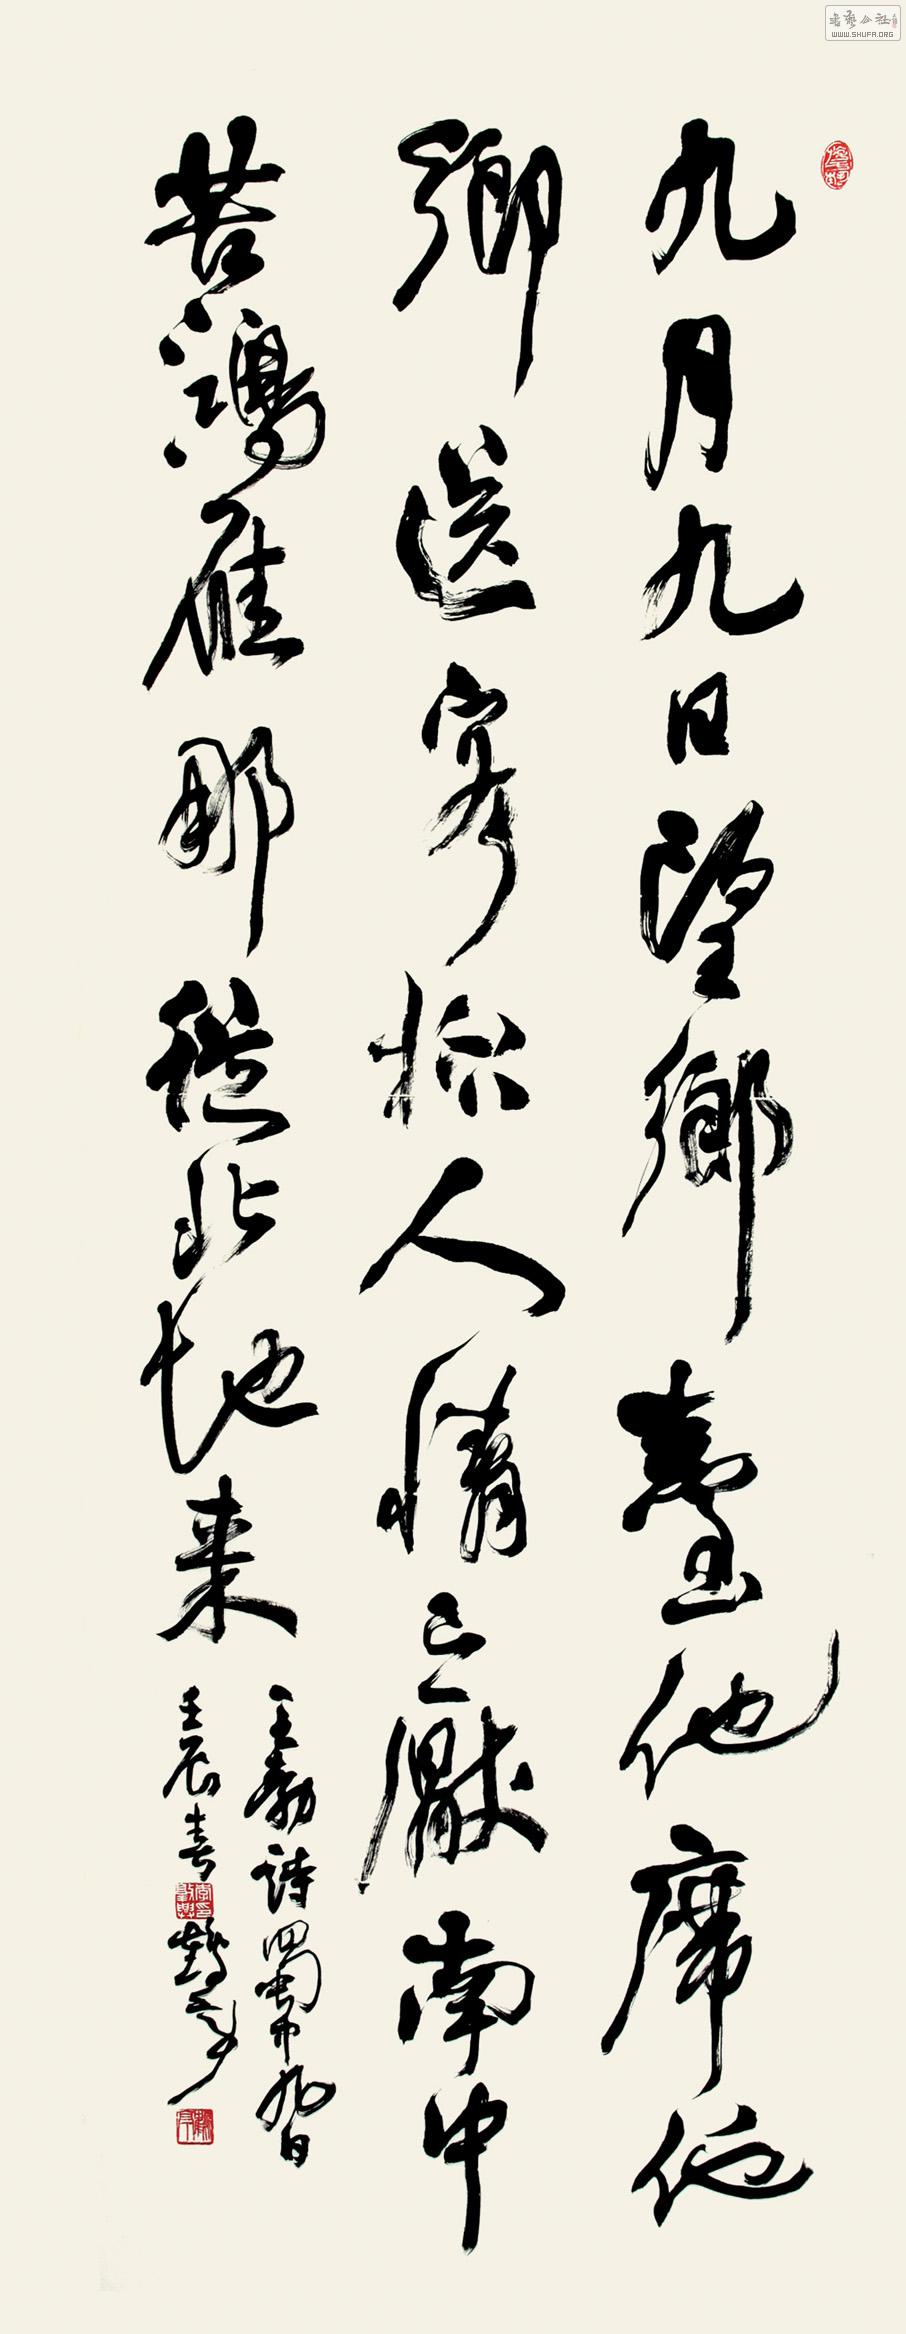 九月九日望鄉臺他席他
鄉送客杯人情已厭南中
苦鴻雁那從北地来
王勃詩蜀中九日
壬辰春
WWW.SHUFA.ORG